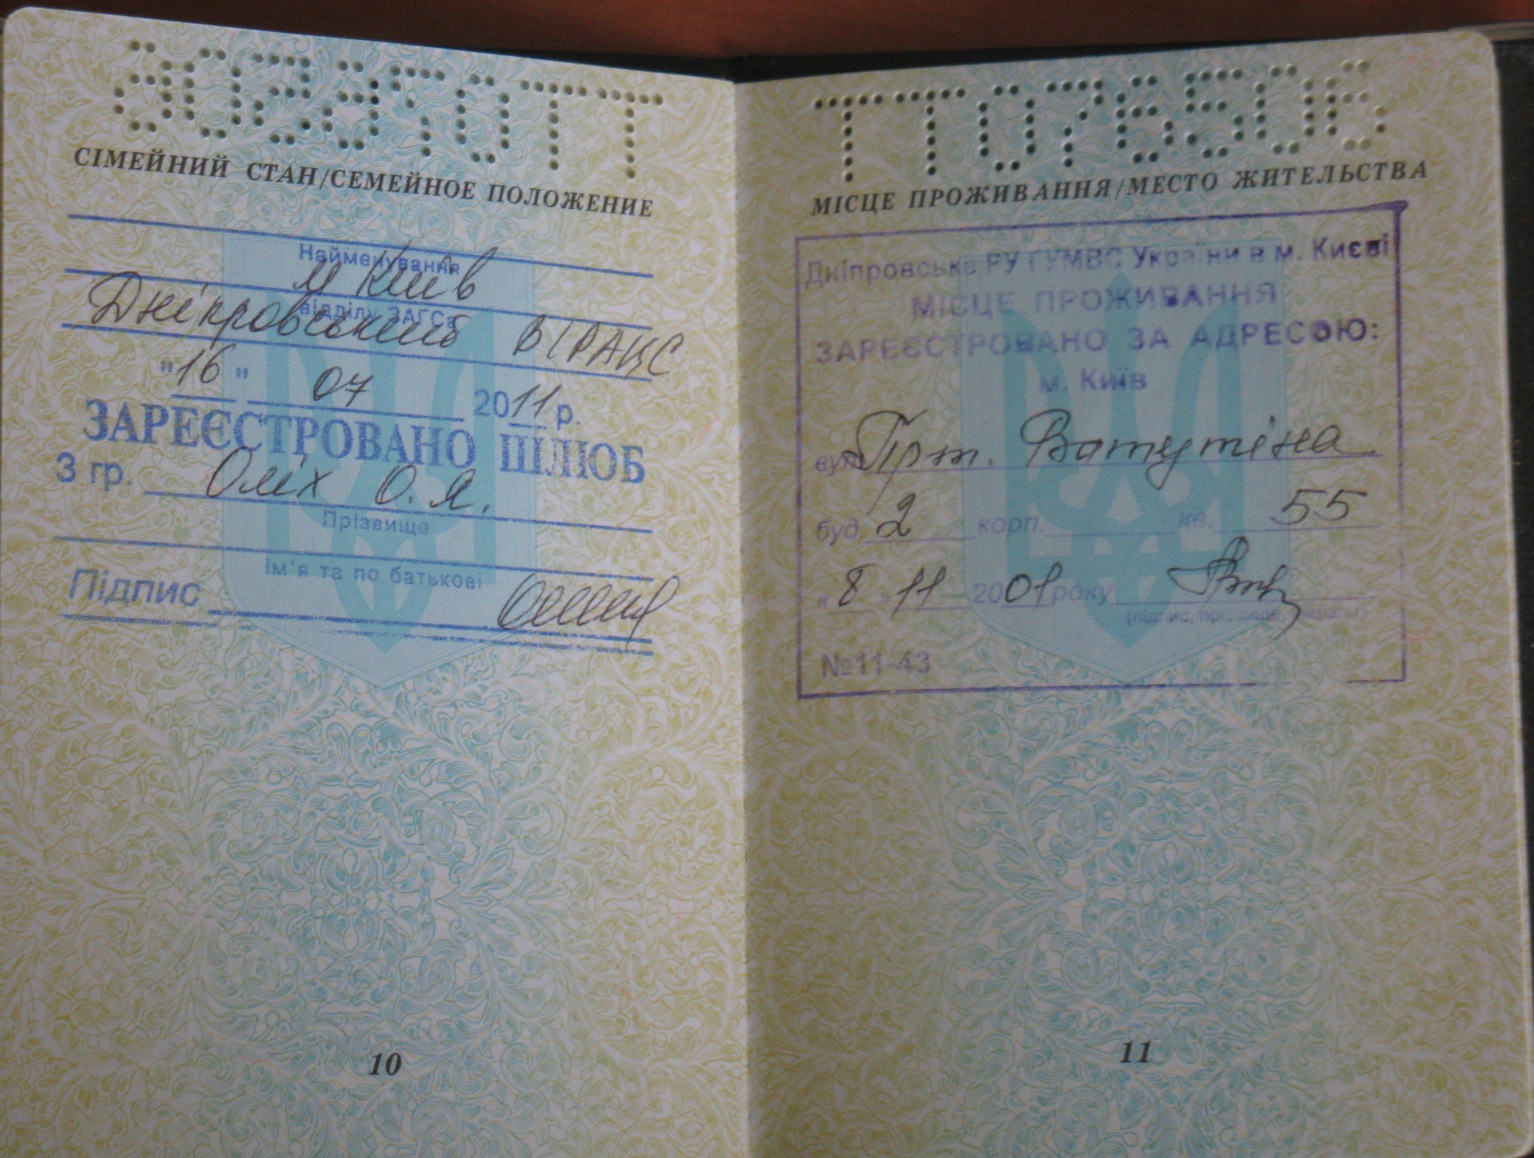 СІМЕЙНИЙ СТАН/СЕМЕЙНОЕ ПОЛОЖЕНИЕ
Найменування
м Київ
відділу ЗАГСа
Дніпровський ВРАЦС
"16" 07 2011 р.
ЗАРЕЄСТРОВАНО ШЛЮБ
З гр. Оліх О. Я.
Прізвище
Ім'я та по батькові
Підпис
10
ТТ076506
МІСЦЕ ПРОЖИВАННЯ/МЕСТО ЖИТЕЛЬСТВА
Дніпровське РУ ГУМВС України в м. Києві
МІСЦЕ ПРОЖИВАННЯ
ЗАРЕЄСТРОВАНО ЗА АДРЕСОЮ:
м. Київ
вул. Прт. Ватутіна
буд. 2 корп. кв. 55
«8» 11 2001 року
(підпис, прізвище, ініціали)
№11-43
11